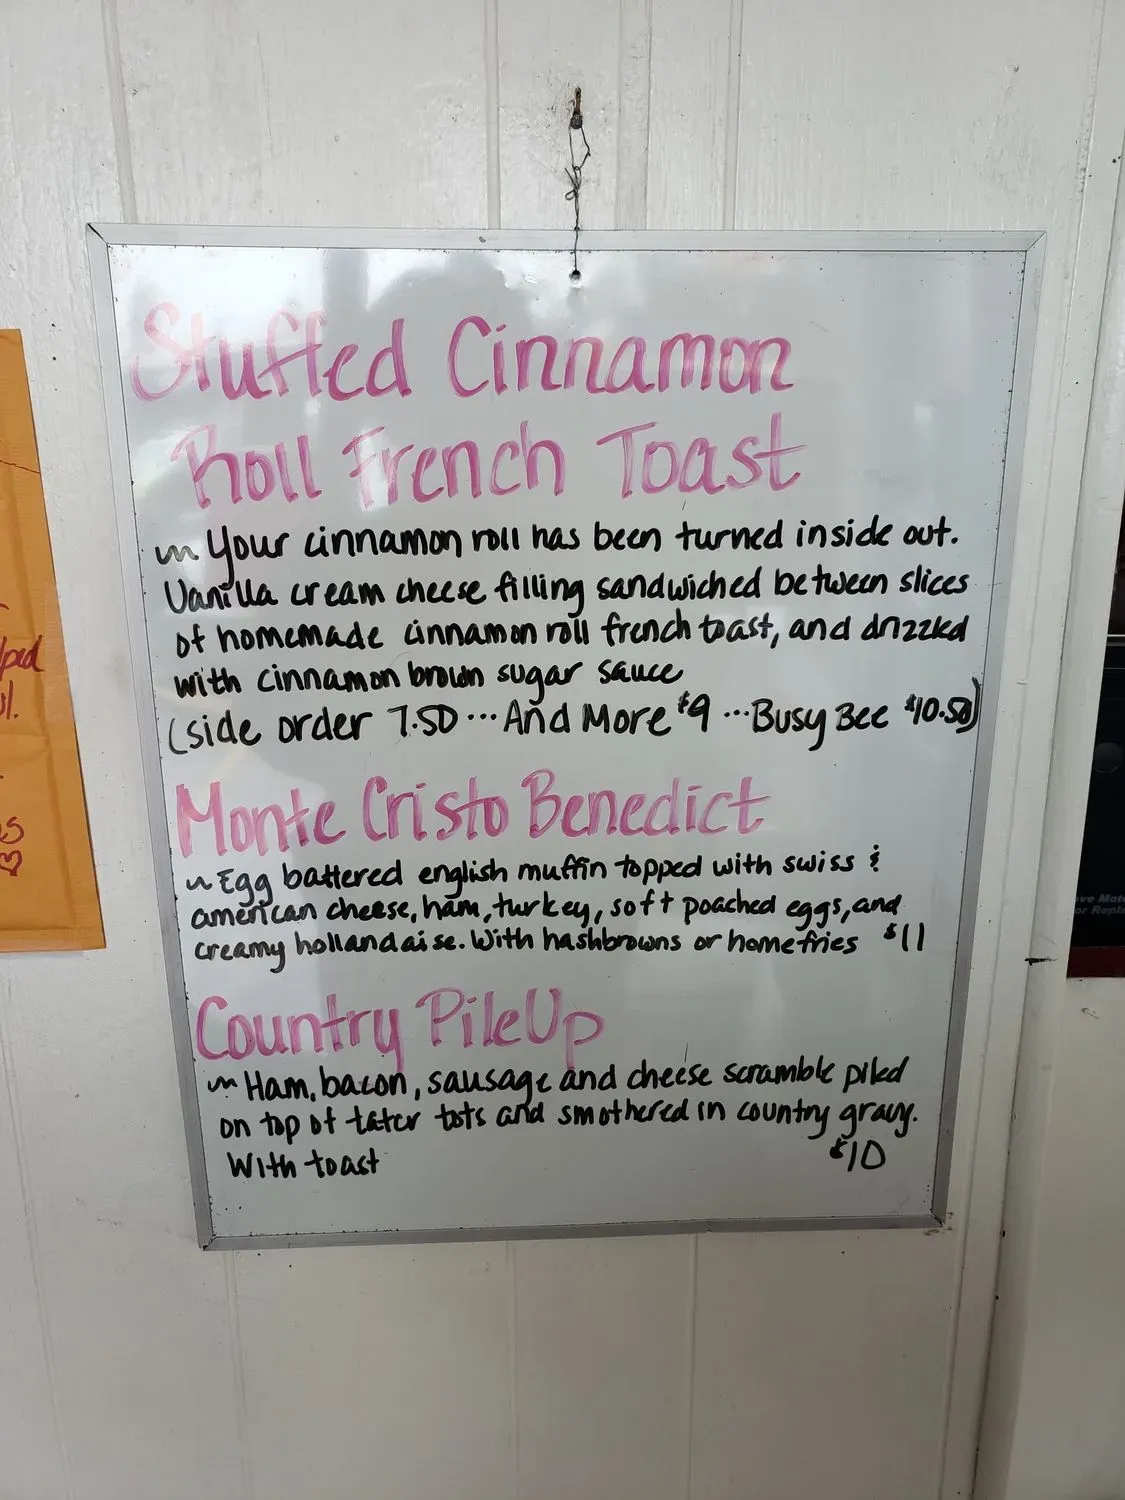 Stuffed Cinnamon
Roll French Toast
~ Your cinnamon roll has been turned inside out.
Vanilla cream cheese filling sandwiched between slices
of homemade cinnamon roll french toast, and drizzled
with cinnamon brown sugar sauce
(side order 7.50 ... And More $9 ... Busy Bee $10.50)
Monte Cristo Benedict
~ Egg battered english muffin topped with swiss &
american cheese, ham, turkey, soft poached eggs, and
creamy hollandaise. With hashbrowns or homefries $11
Country PileUp
~ Ham, bacon, sausage and cheese scramble piled
on top of tater tots and smothered in country gravy.
With toast $10